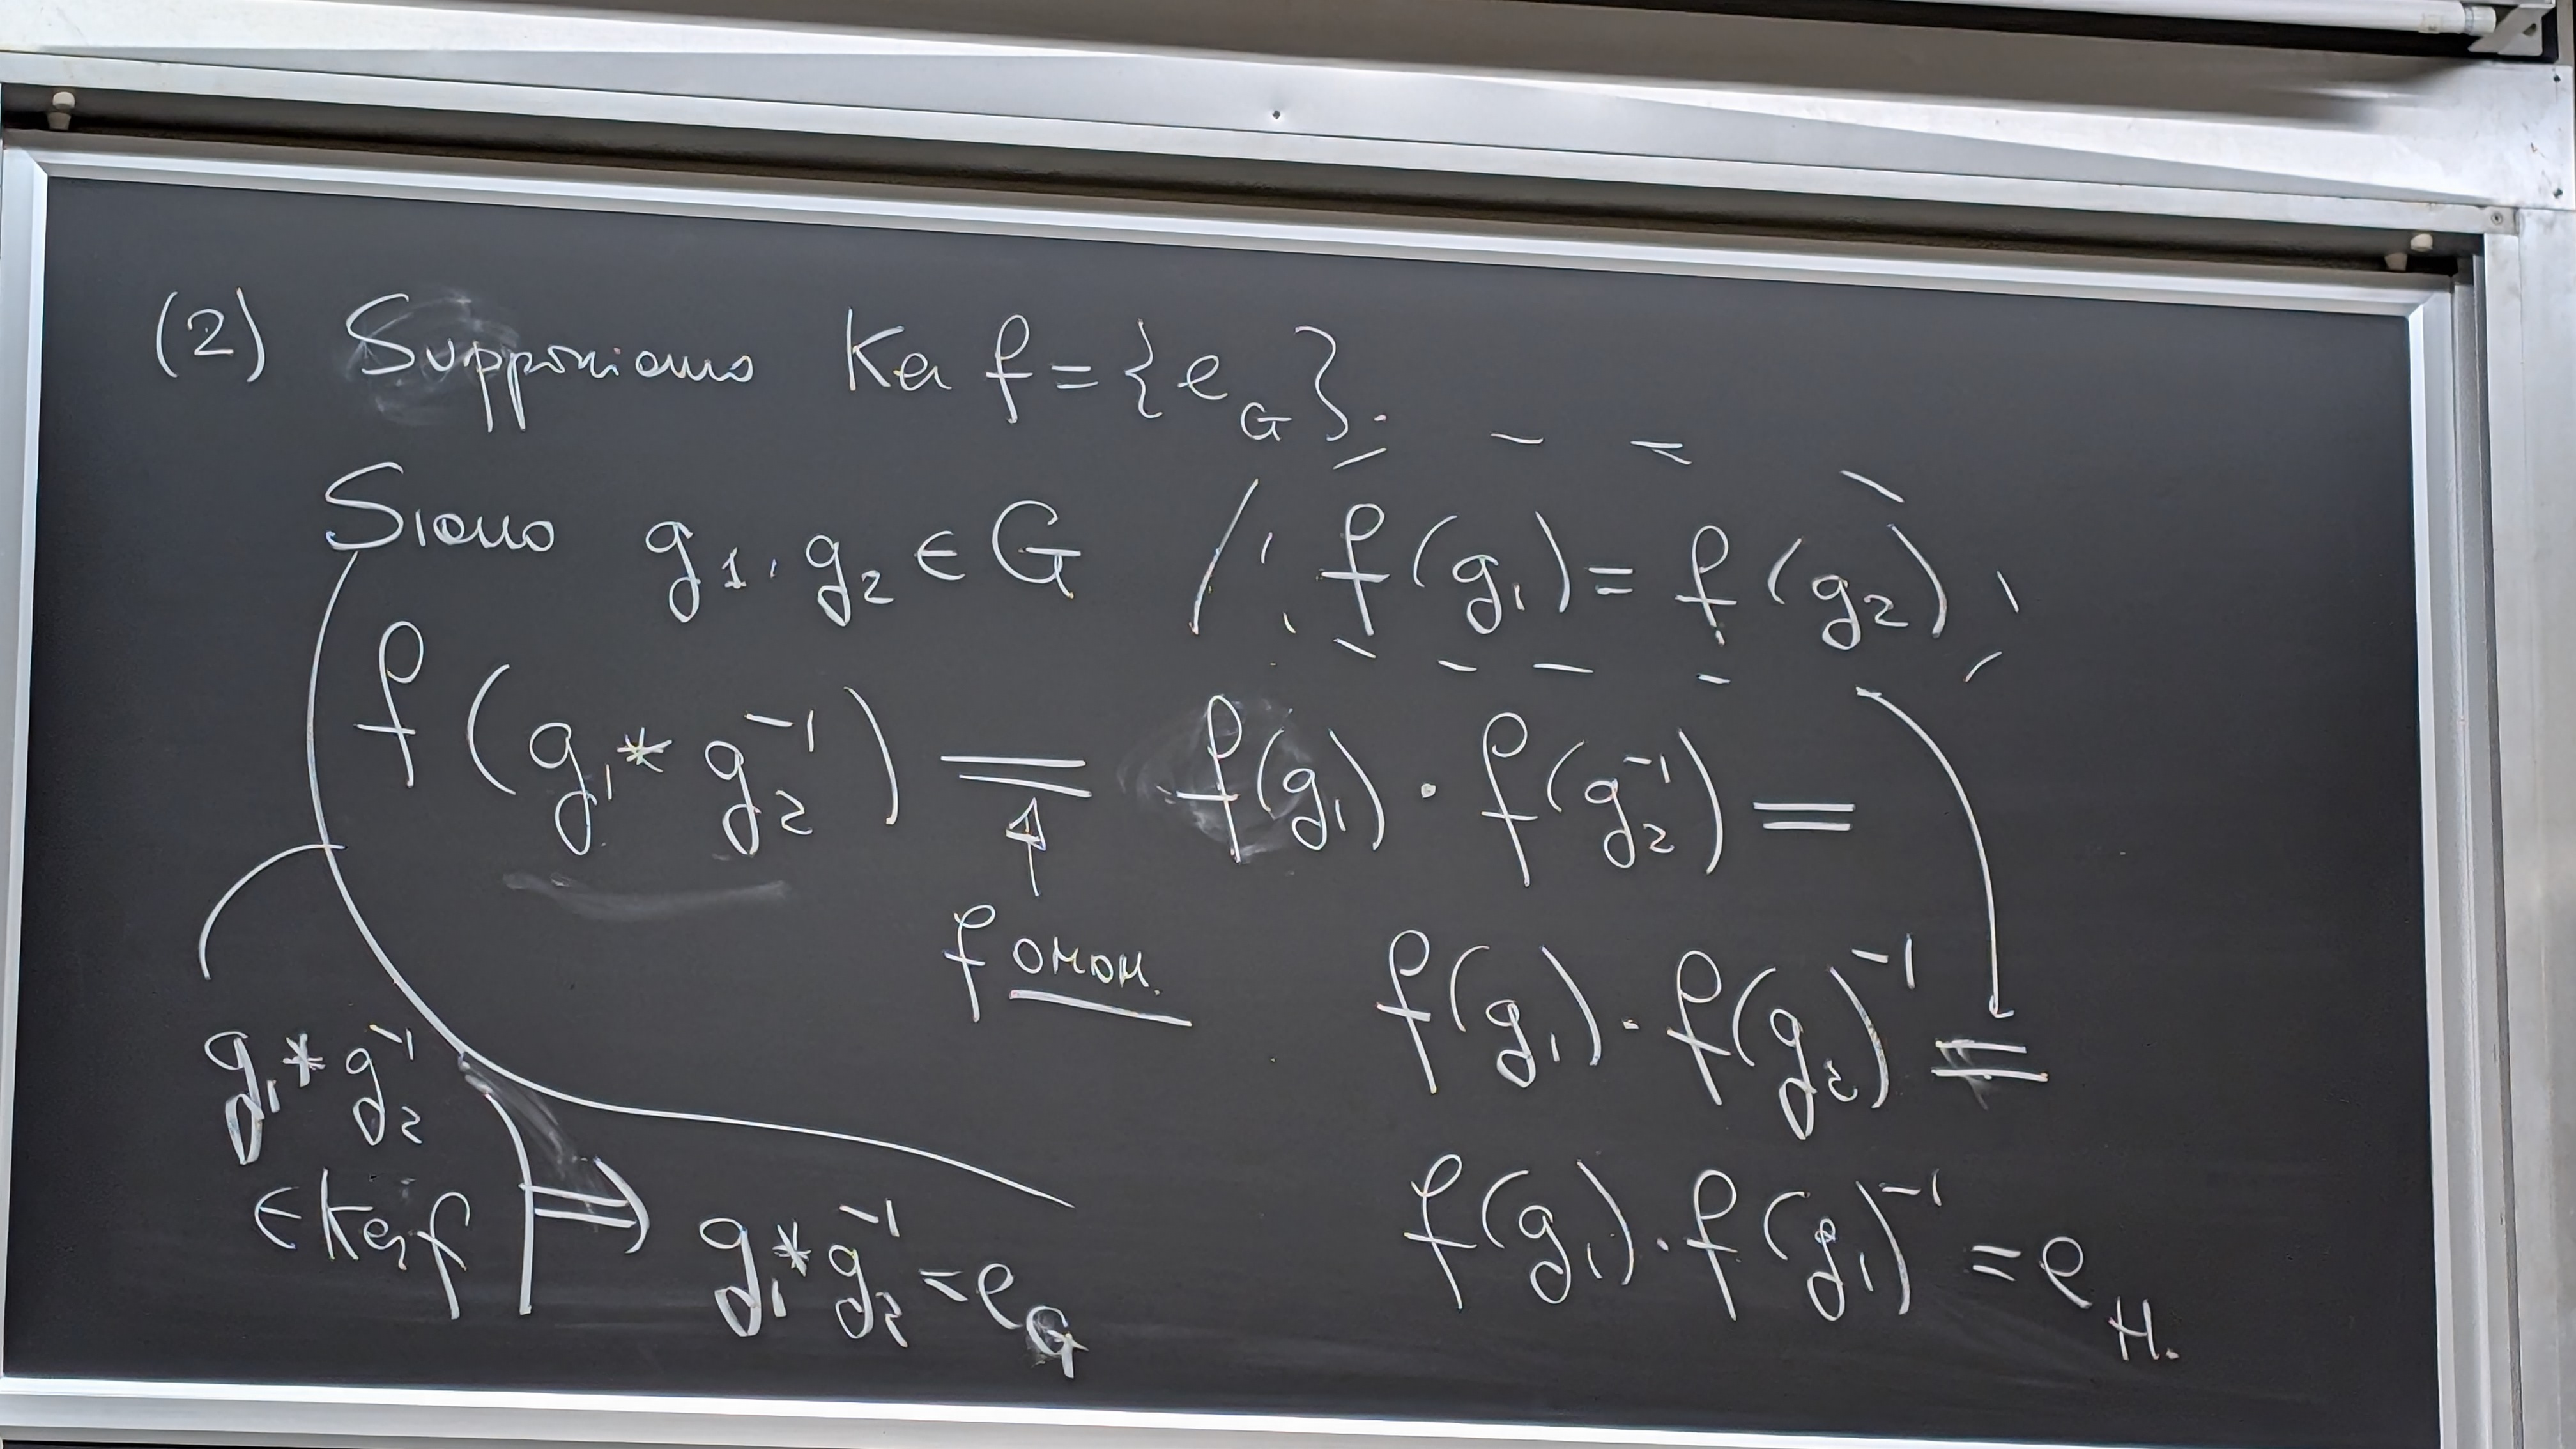 (2) Supponiamo Ker f = {e_G}.
Siano g_1, g_2 ∈ G / f(g_1) = f(g_2)
f(g_1 * g_2^{-1}) = f(g_1) · f(g_2^{-1}) =
f omom.
f(g_1) · f(g_2)^{-1} =
f(g_1) · f(g_1)^{-1} = e_H.
g_1 * g_2^{-1}
∈ Ker f ⇒ g_1 * g_2^{-1} = e_G